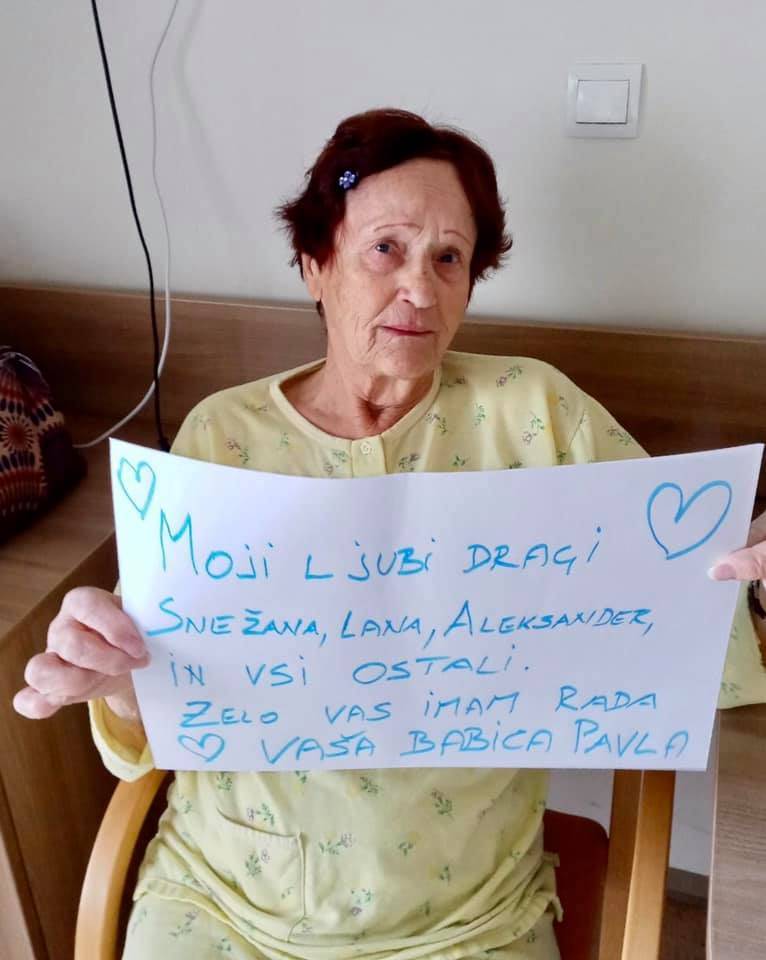 Moji ljubi dragi
Snežana, Lana, Aleksander,
in vsi ostali.
Zelo vas imam rada
vaša babica Pavla